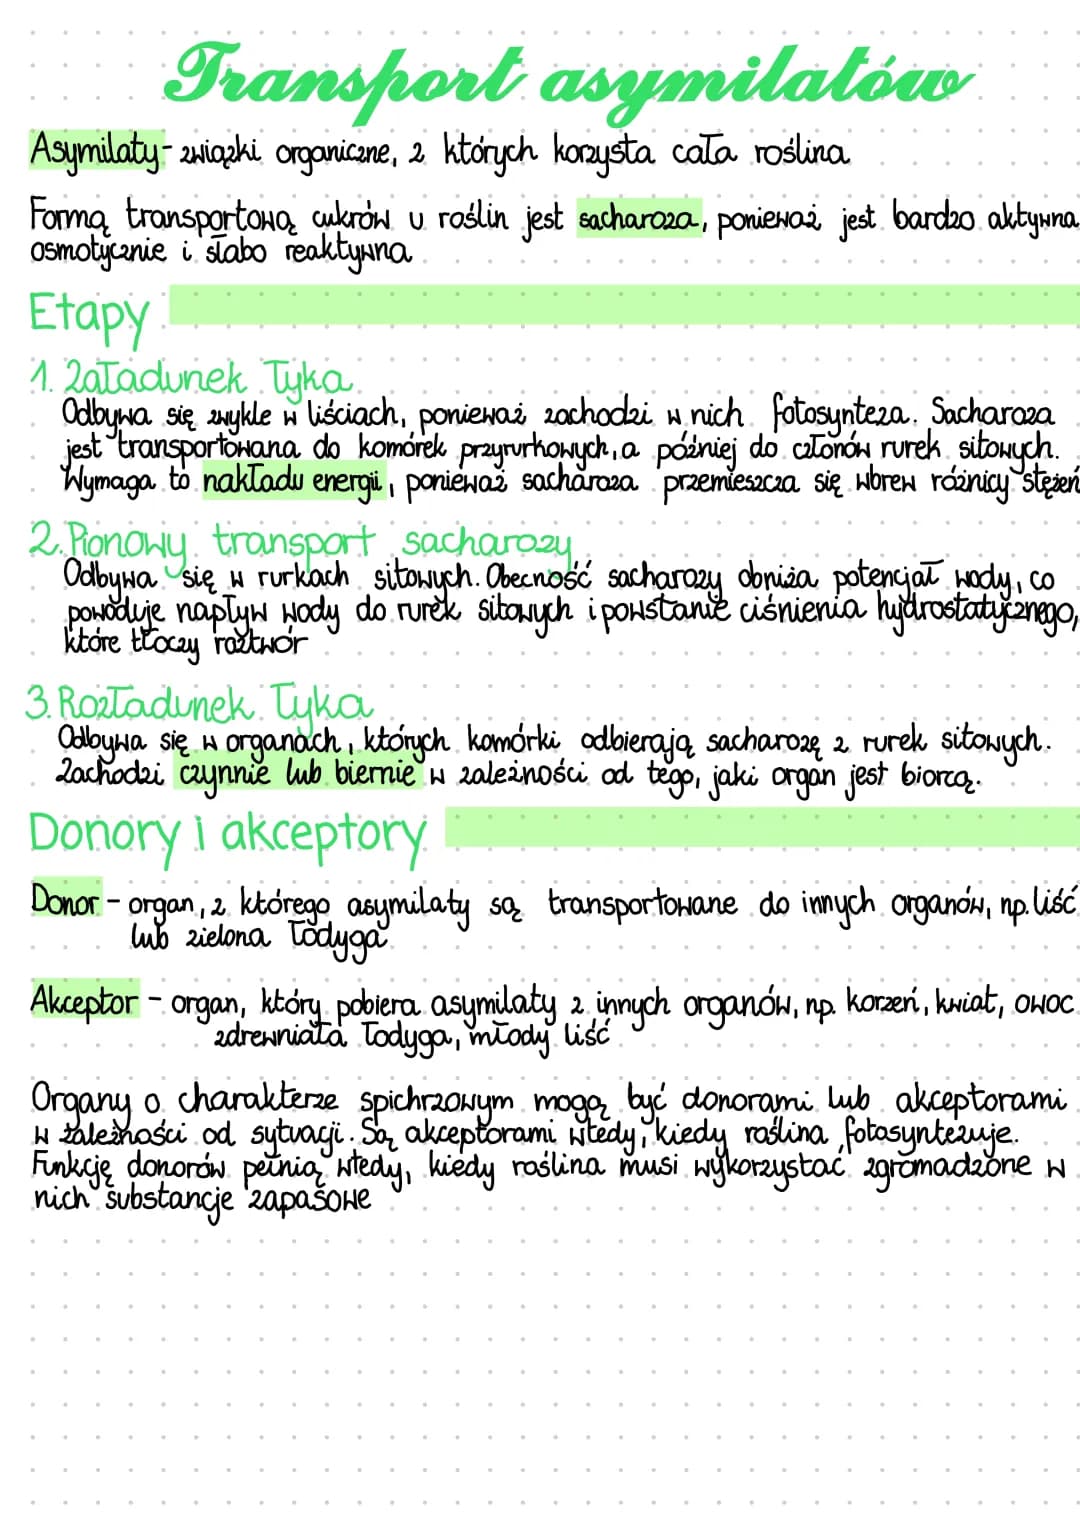 Transport asymilatów
Asymilaty - związki organiczne, z których korzysta cała roślina
Formą transportową cukrów u roślin jest sacharoza, ponieważ jest bardzo aktywna
osmotycznie i słabo reaktywna
Etapy
1. Załadunek łyka
Odbywa się zwykle w liściach, ponieważ zachodzi w nich fotosynteza. Sacharoza
jest transportowana do komórek przyrurkowych, a później do członów rurek sitowych.
Wymaga to nakładu energii, ponieważ sacharoza przemieszcza się wbrew różnicy stężeń
2. Pionowy transport sacharozy
Odbywa się w rurkach sitowych. Obecność sacharozy obniża potencjał wody, co
powoduje napływ wody do rurek sitowych i powstanie ciśnienia hydrostatycznego,
które tłoczy roztwór
3. Rozładunek łyka
Odbywa się w organach, których komórki odbierają sacharozę z rurek sitowych.
Zachodzi czynnie lub biernie w zależności od tego, jaki organ jest biorcą.
Donory i akceptory
Donor - organ, z którego asymilaty są transportowane do innych organów, np. liść
lub zielona łodyga
Akceptor - organ, który pobiera asymilaty z innych organów, np. korzeń, kwiat, owoc
zdrewniała łodyga, młody liść
Organy o charakterze spichrzowym mogą być donorami lub akceptorami
w zależności od sytuacji. Są akceptorami wtedy, kiedy roślina fotosyntezuje.
Funkcję donorów pełnią wtedy, kiedy roślina musi wykorzystać zgromadzone w
nich substancje zapasowe